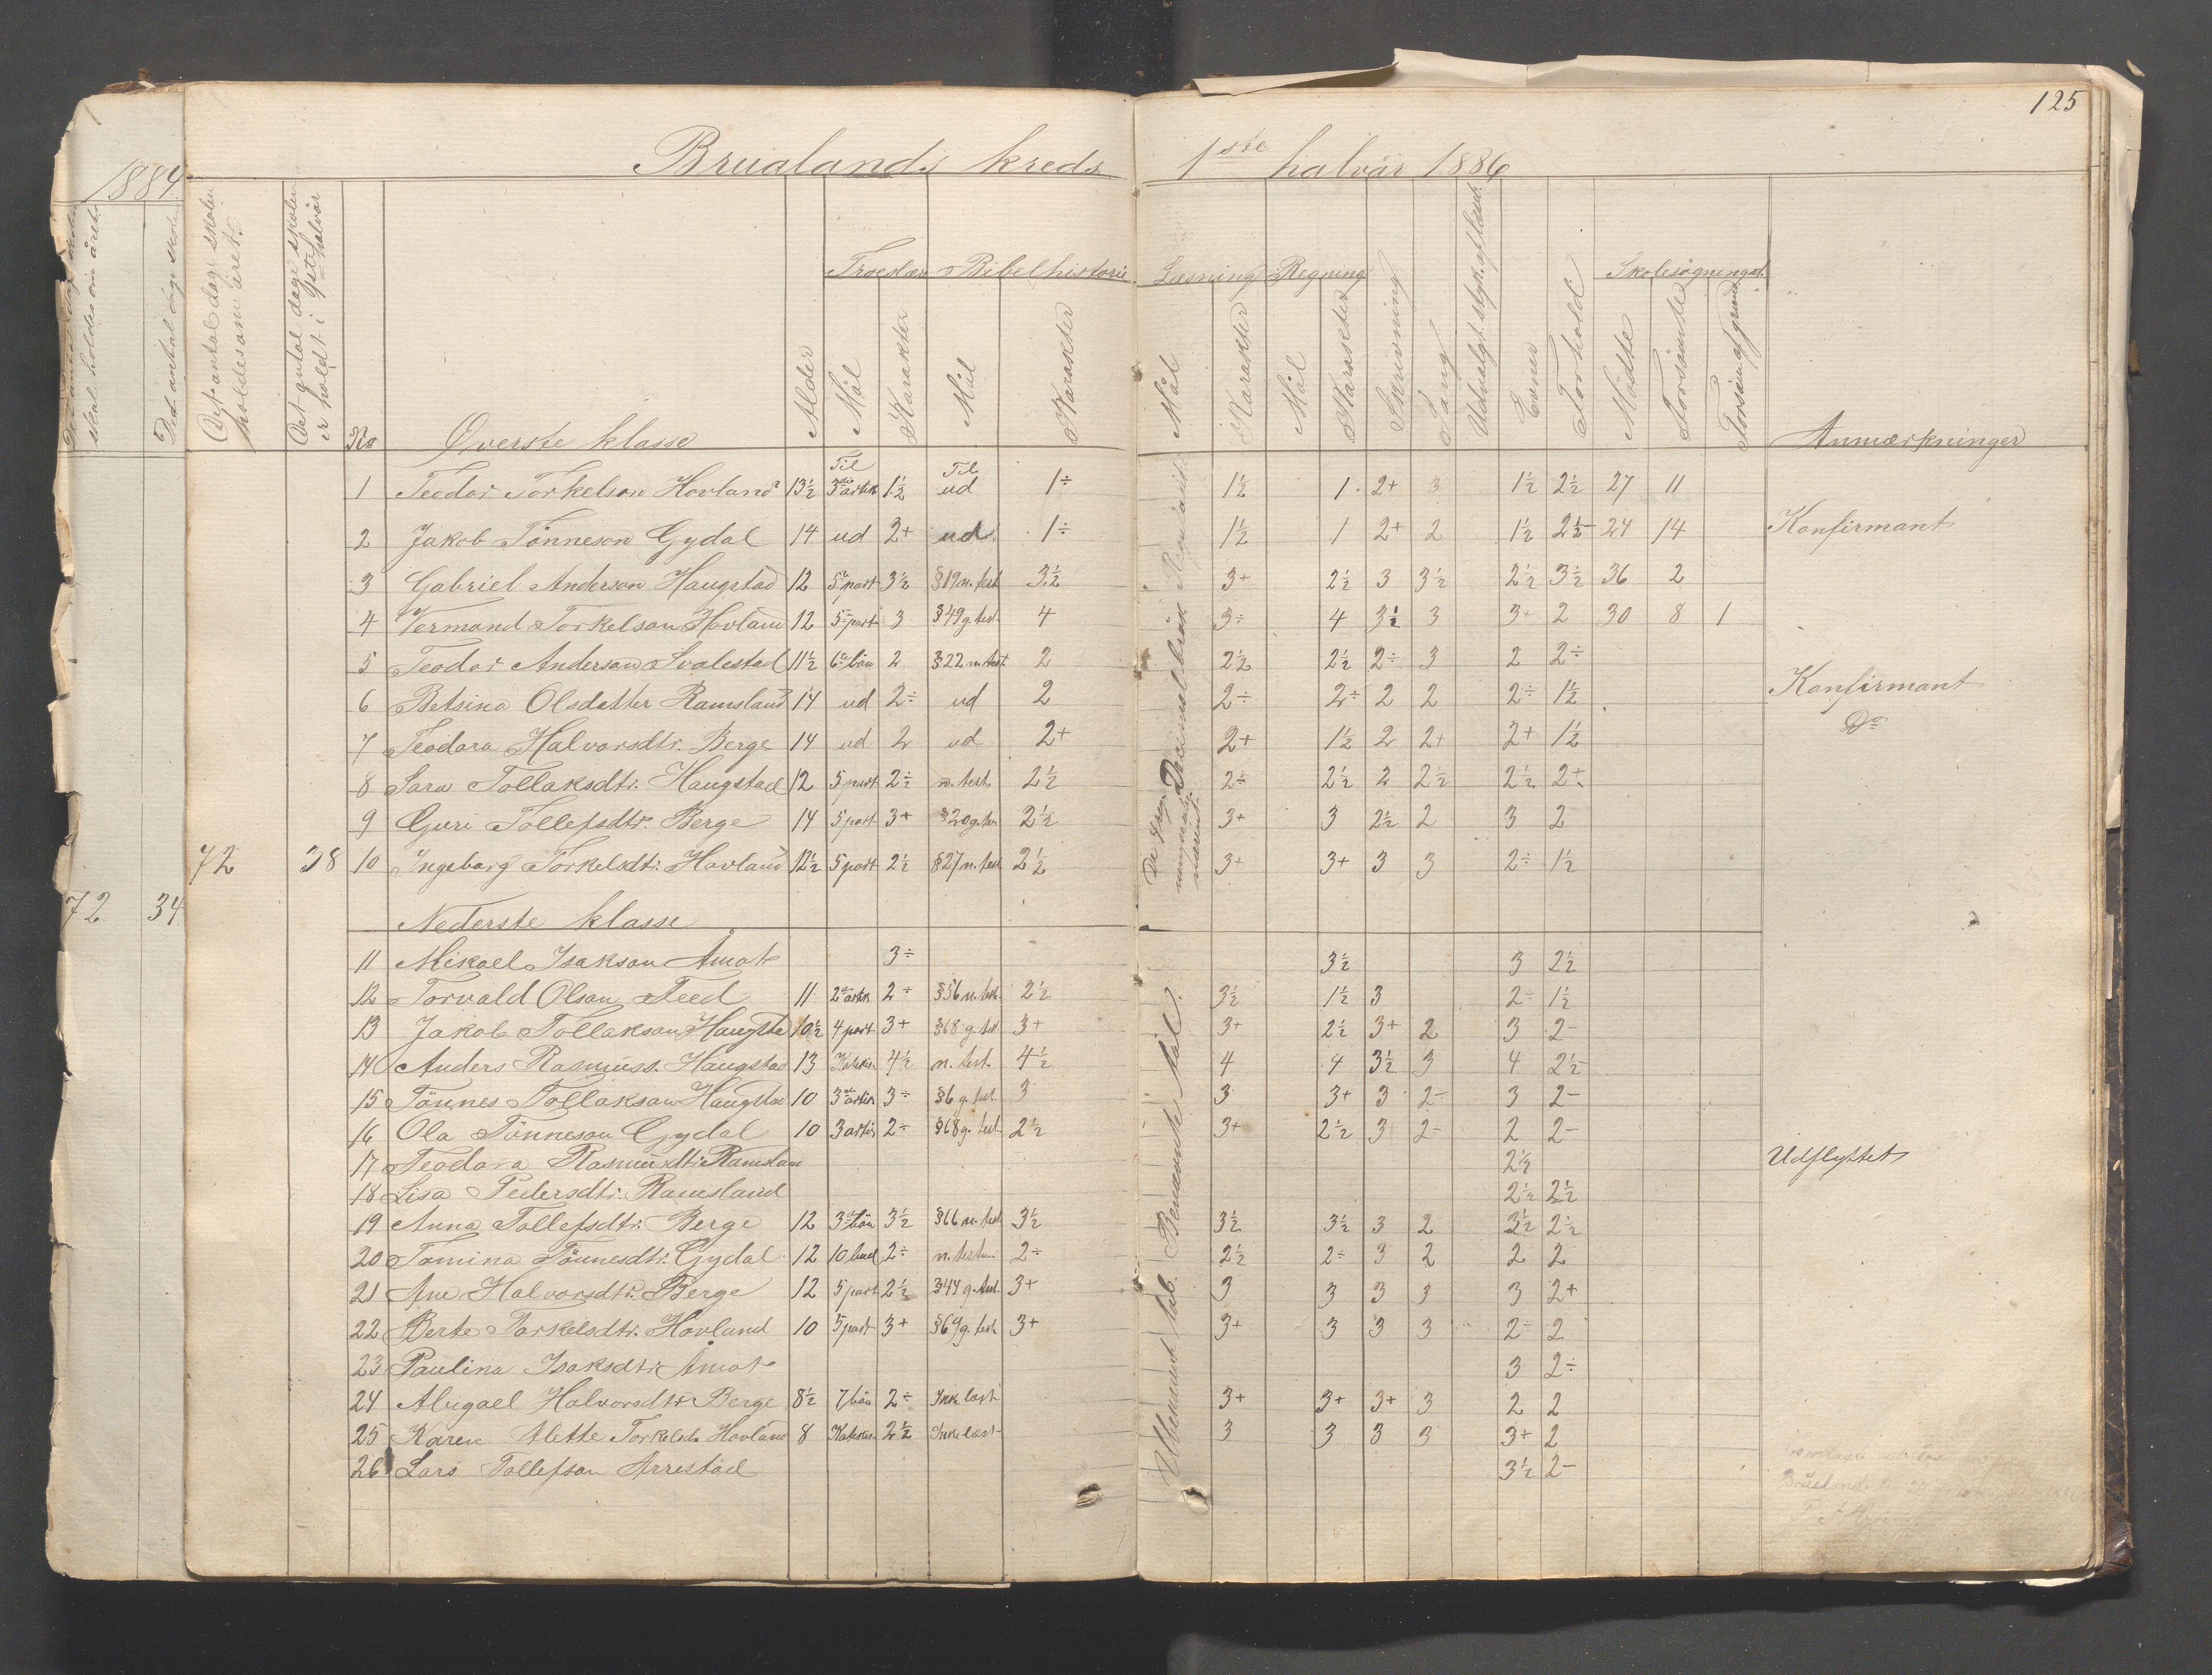 125
1884.
Bruelands kreds 1ste halvår 1886
skal holdes om året
Det antal dage skole
Det antal dage skolen
holdes om året.
Det antal dage skolen
er holdt i 1ste halvår
No
Øverste klasse
Alder
Troeslære Bibelhistorie Læsning Regning
Mål Karakter Mål Karakter Mål Karakter Mål Karakter
Skrivning Sang Udvalgt styk. af læseb. Evner Forhold
Skolesøgningen
Mødte Forsømte Forsøm. af grund
Anmærkninger
1 Teodor Torkelson Hovland 13½ Til 3die artik 1½ Til ud 1÷ 1½ 1 2+ 3 1½ 2½ 27 11
2 Jakob Tönneson Gydal 14 ud 2+ ud 1÷ 1½ 1 2+ 2 1½ 2½ 24 14 Konfirmant
3 Gabriel Anderson Haugstad 12 5te part 3½ §19 n. test 3½ 3+ 2½ 3 3½ 2½ 3½ 36 2
4 Vermond Torkelson Hovland 12 5te part 3 §49 g. test. 4 3÷ 4 3½ 3 3+ 2 30 8 1
5 Teodor Anderson Svalestad 11½ 6te bön 2 §22 n. test 2 2½ 2½ 2÷ 3 2 2÷
6 Betsina Olsdatter Ramsland 14 ud 2÷ ud 2 2÷ 2÷ 2 2 2÷ 1½ Konfirmant
7 Teodora Halvorsdtr. Berge 14 ud 2 ud 2+ 2+ 1½ 2 2+ 2+ 1½ Do
8 Sara Tollaksdtr. Haugstad 12 5 part 2÷ n. test. 2½ 2÷ 2½ 2 2½ 2½ 2+
9 Guri Tollefsdtr. Berge 14 5 part 3+ §20 g. tes. 2½ 3+ 3 2½ 2 3 2
72 38 10 Ingeborg Torkelsdtr. Hovland 12½ 5 part 2½ §27 n. test. 2½ 3+ 3+ 3 3 2÷ 1½
72 34
Nederste klasse
11 Mikael Isakson Åmot 3÷ 3½ 3 2½
12 Torvald Olson Feed 11 2den artik 2÷ §56 n. test. 2½ 3½ 1½ 3 2÷ 1½
13 Jakob Tollakson Haugstad 10½ 4 part 3+ §68 g. test 3+ 3+ 2½ 3+ 2 3 2-
14 Anders Rasmuss. Haugstad 13 Katekis. 4½ n. test. 4½ 4 4 3½ 3 4 2½
15 Tönnes Tollakson Haugstad 10 3die artik 3÷ §6 g. test. 3 3 3+ 3 2- 3 2-
16 Ola Tönneson Gydal 10 3 artik 2÷ §68 g. test. 2½ 3+ 2½ 3 2- 2 2-
17 Teodora Rasmusdtr. Ramsland 2½ Udflyttet
18 Lisa Pedersdtr. Ramsland 2½ 2½
19 Anna Tollefsdtr. Berge 12 3die bön 3½ §66 n. test 3½ 3½ 3½ 3 2 3½ 2½
20 Tomina Tönnesdtr. Gydal 12 10 bud 2÷ n. testm. 2÷ 2½ 2÷ 3 2 2 2
21 Ane Halvorsdtr. Berge 12 5 part 2½ §44 g. test. 3+ 3 3 3 3 3 2+
22 Berte Torkelsdtr. Hovland 10 5 part 3+ §69 g. test. 3+ 3+ 3 3 3 2÷ 2
23 Paulina Isaksdtr. Åmot 3 2÷
24 Abigael Halvorsdtr. Berge 8½ 7 bön 2÷ Ikke læst 3+ 3+ 3+ 3 2 2
25 Karen Alette Torkelsd. Hovland 8 Katekis. 2½ Ikke læst 3 3 3 3 3+ 2
26 Lars Tollefson Årrestad 3½ 2-
Ubenævnt tab. Benævnte tal.